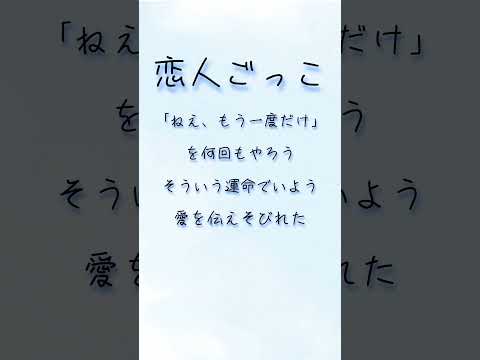 恋人ごっこ
「ねえ、もう一度だけ」
を何回もやろう
そういう運命でいよう
愛を伝えそびれた